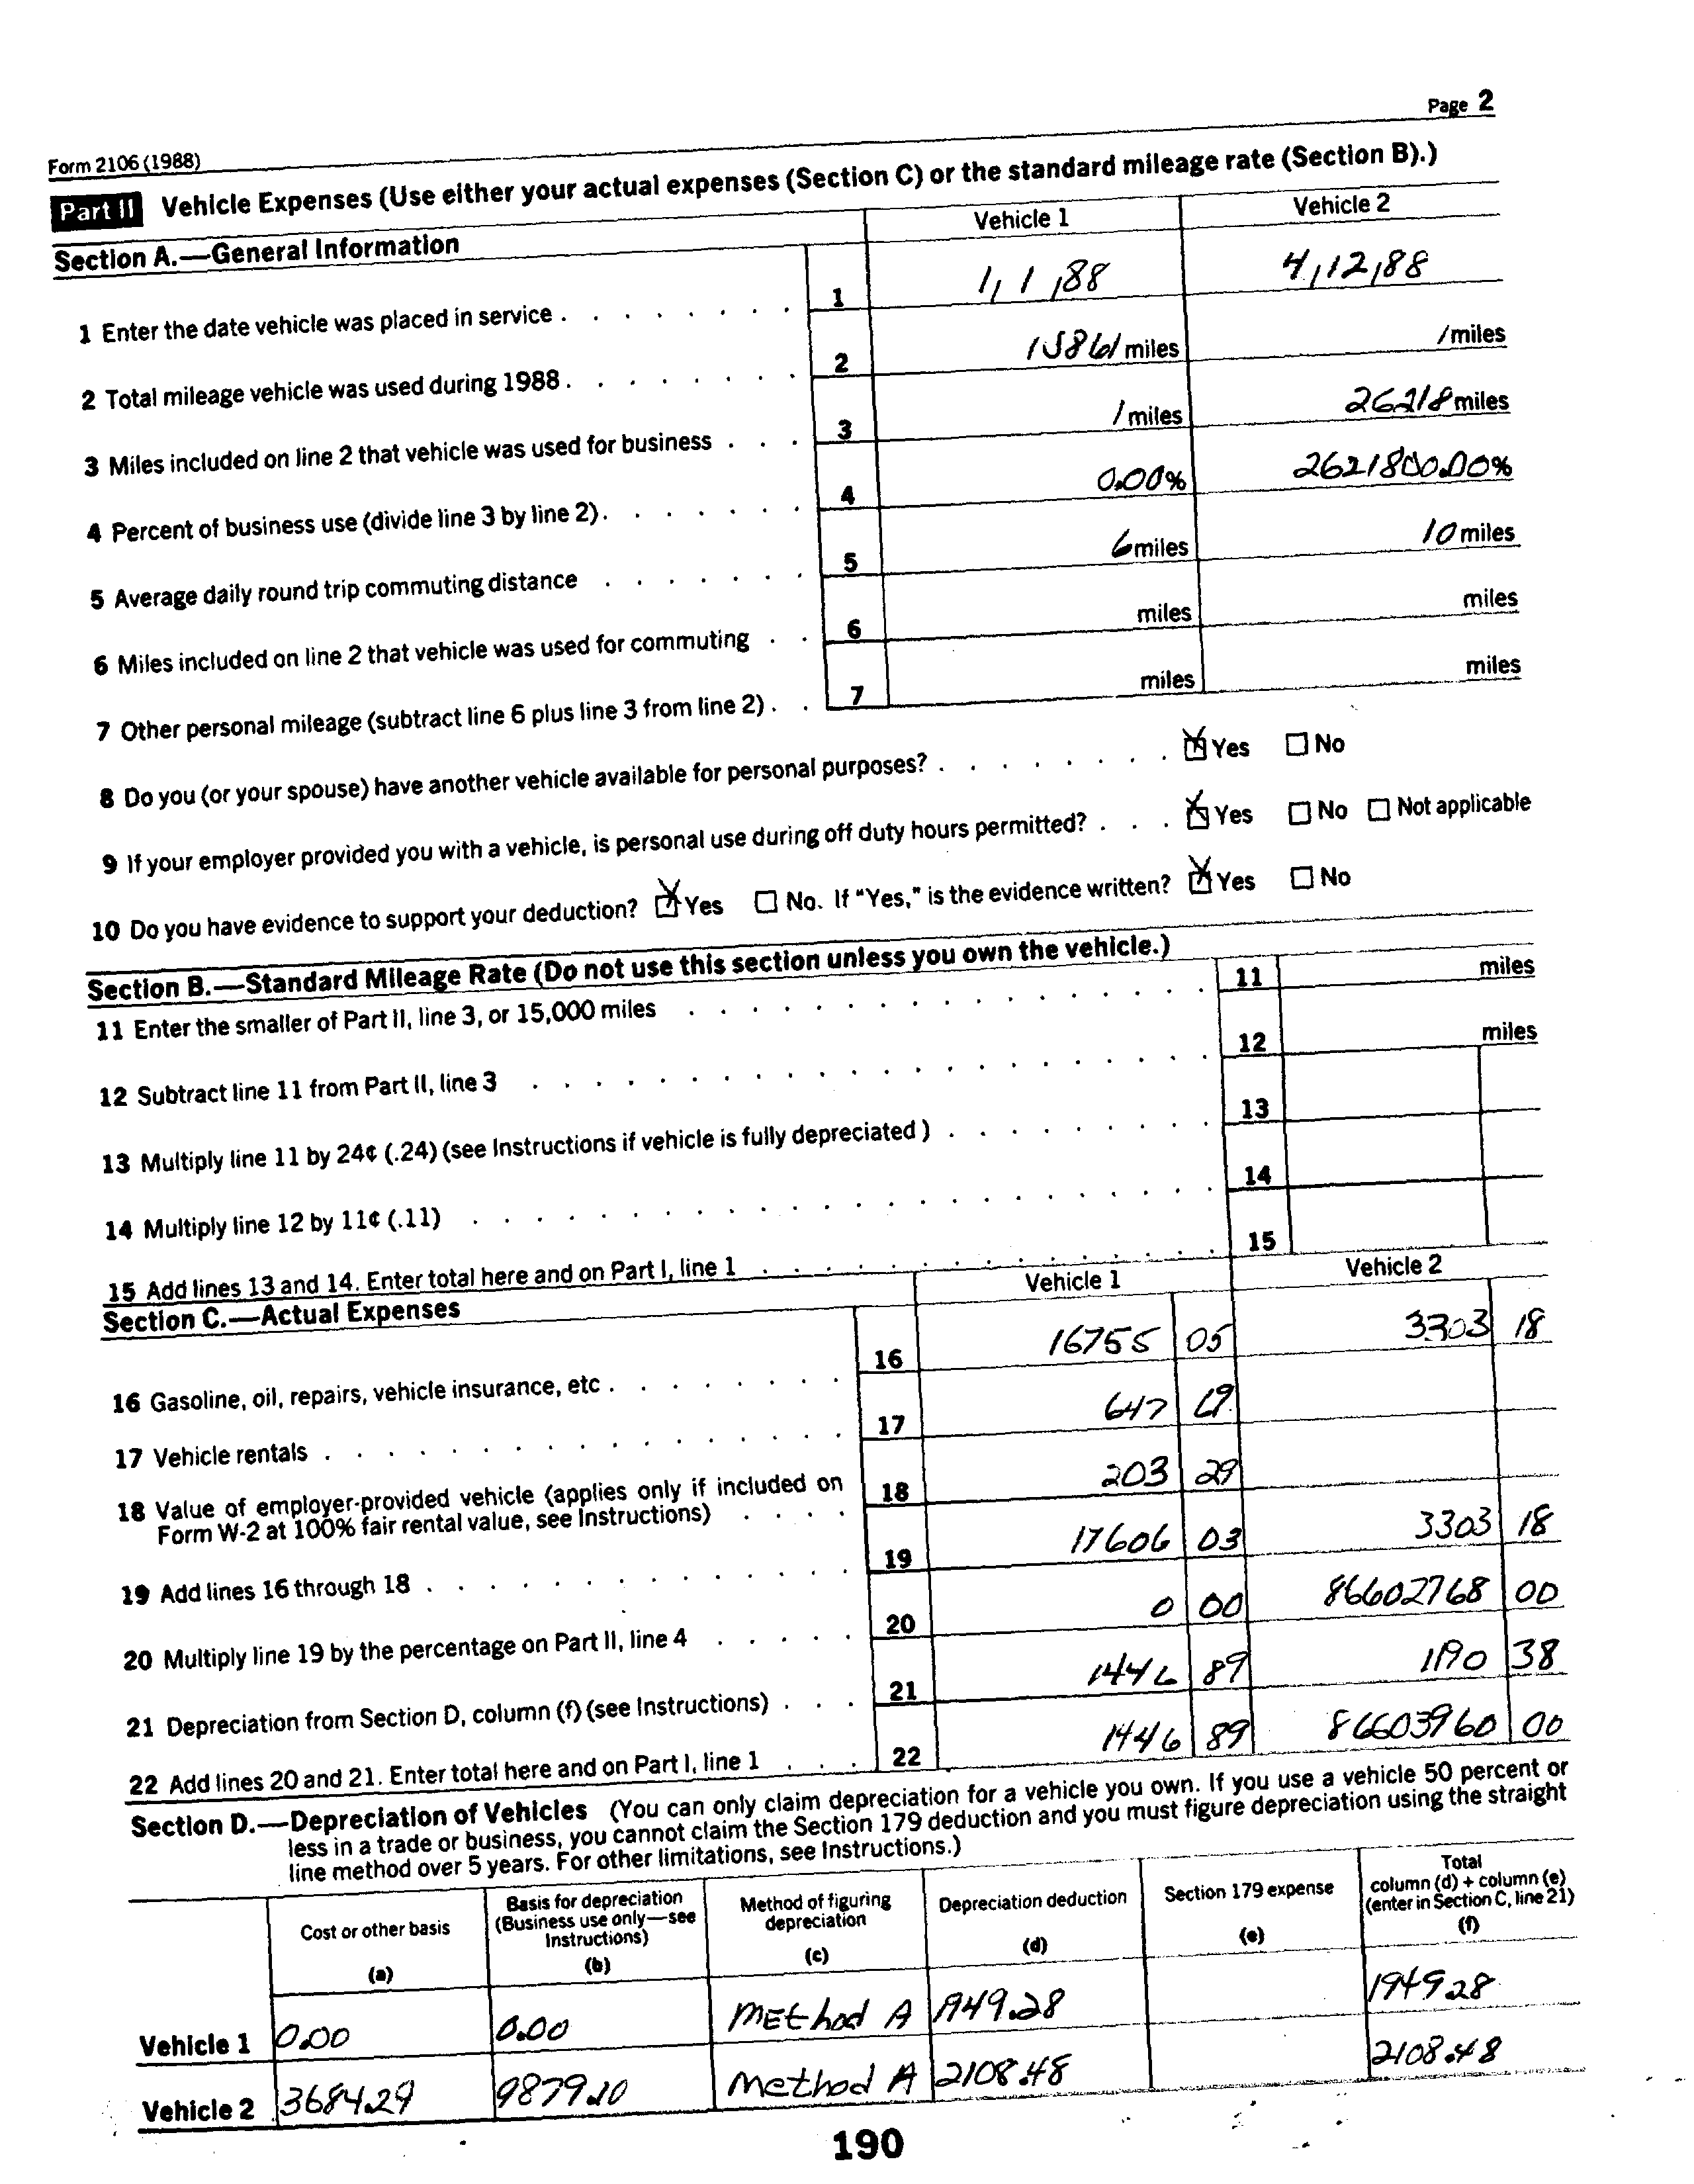 Page 2
Form 2106 (1988)
Part II Vehicle Expenses (Use either your actual expenses (Section C) or the standard mileage rate (Section B).)
Section A.—General Information Vehicle 1 Vehicle 2
1 Enter the date vehicle was placed in service . . . . . . . . 1 1,1,88 4,12,88
2 Total mileage vehicle was used during 1988 . . . . . . . . 2 15861 miles 1 miles
3 Miles included on line 2 that vehicle was used for business . . . 3 1 miles 26218 miles
4 Percent of business use (divide line 3 by line 2) . . . . . . . 4 0.00% 2621800.00%
5 Average daily round trip commuting distance . . . . . . . 5 6 miles 10 miles
6 Miles included on line 2 that vehicle was used for commuting . . 6 miles miles
7 Other personal mileage (subtract line 6 plus line 3 from line 2) . . 7 miles miles
8 Do you (or your spouse) have another vehicle available for personal purposes? . . . . . . . . ☒ Yes ☐ No
9 If your employer provided you with a vehicle, is personal use during off duty hours permitted? . . . ☒ Yes ☐ No ☐ Not applicable
10 Do you have evidence to support your deduction? ☒ Yes ☐ No. If "Yes," is the evidence written? ☒ Yes ☐ No
Section B.—Standard Mileage Rate (Do not use this section unless you own the vehicle.)
11 Enter the smaller of Part II, line 3, or 15,000 miles . . . . . . . . . . . . . . . . 11 miles
12 Subtract line 11 from Part II, line 3 . . . . . . . . . . . . . . . . . . . . . 12 miles
13 Multiply line 11 by 24¢ (.24) (see Instructions if vehicle is fully depreciated) . . . . . . . . . 13
14 Multiply line 12 by 11¢ (.11) . . . . . . . . . . . . . . . . . . . . . . . 14
15 Add lines 13 and 14. Enter total here and on Part I, line 1 . . . . . . . . . . . . . . 15
Section C.—Actual Expenses Vehicle 1 Vehicle 2
16 Gasoline, oil, repairs, vehicle insurance, etc . . . . . . . . 16 16755 05 3303 18
17 Vehicle rentals . . . . . . . . . . . . . . . . . 17 647 69
18 Value of employer-provided vehicle (applies only if included on
Form W-2 at 100% fair rental value, see Instructions) . . . . 18 203 29
19 Add lines 16 through 18 . . . . . . . . . . . . . . 19 17606 03 3303 18
20 Multiply line 19 by the percentage on Part II, line 4 . . . . . 20 0 00 86602768 00
21 Depreciation from Section D, column (f) (see Instructions) . . . 21 1446 89 1190 38
22 Add lines 20 and 21. Enter total here and on Part I, line 1 . . . 22 1446 89 86603960 00
Section D.—Depreciation of Vehicles (You can only claim depreciation for a vehicle you own. If you use a vehicle 50 percent or
less in a trade or business, you cannot claim the Section 179 deduction and you must figure depreciation using the straight
line method over 5 years. For other limitations, see Instructions.)
Cost or other basis
(a)
Basis for depreciation
(Business use only—see
Instructions)
(b)
Method of figuring
depreciation
(c)
Depreciation deduction
(d)
Section 179 expense
(e)
Total
column (d) + column (e)
(enter in Section C, line 21)
(f)
Vehicle 1 0.00 0.00 Method A 1949.28 1949.28
Vehicle 2 3684.29 9879.10 Method A 2108.48 2108.48
190